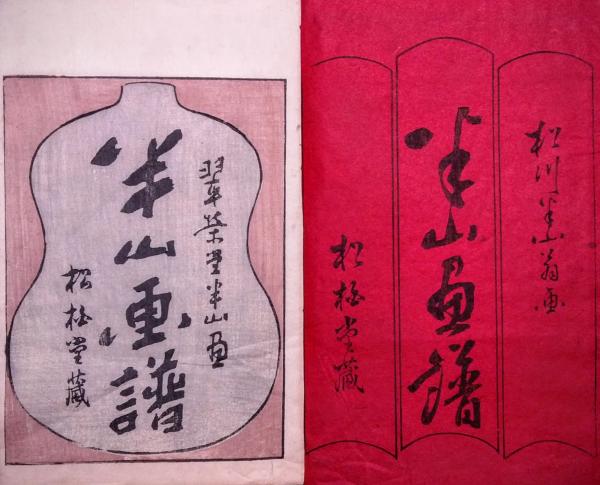 松川半山翁画
半山畫譜
松栢堂藏
翠榮堂半山畫
半山画譜
松栢堂藏